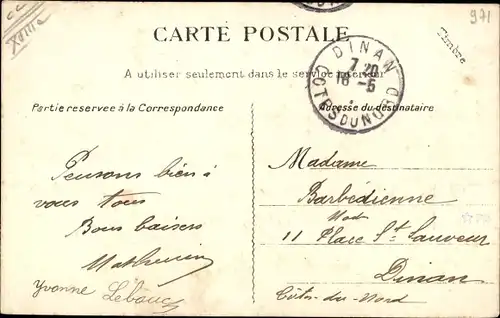 971
XVIIIe
Timbre
CARTE POSTALE
A utiliser seulement dans le service intérieur
DINAN
7 30
18 - 5
COTES DU NORD
Partie reservee à la Correspondance
Adresse du destinataire
Pensons bien à
vous tous
Bons baisers
Yvonne
Madame
Barbédienne
11 Place St Sauveur
Dinan
Côtes-du-Nord